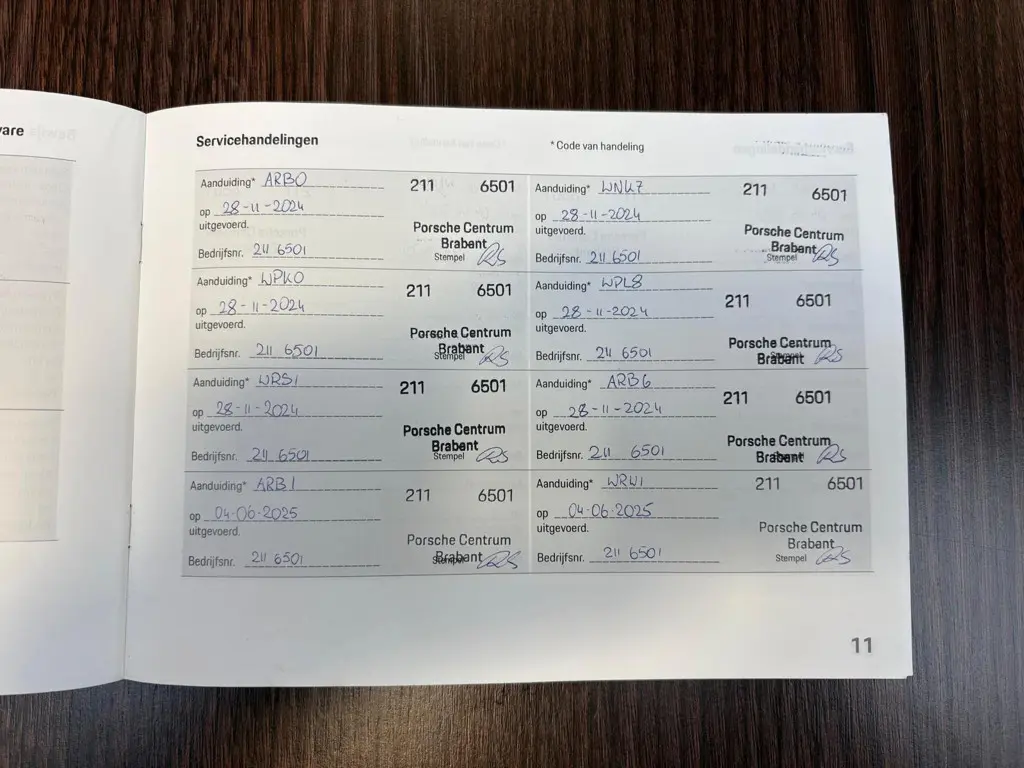 vare
Servicehandelingen
* Code van handeling
Aanduiding* ARB0
op 28-11-2024
uitgevoerd.
Bedrijfsnr. 211 6501
211 6501
Porsche Centrum
Brabant
Stempel
Aanduiding* WNK7
op 28-11-2024
uitgevoerd.
Bedrijfsnr. 211 6501
211 6501
Porsche Centrum
Brabant
Stempel
Aanduiding* WPK0
op 28-11-2024
uitgevoerd.
Bedrijfsnr. 211 6501
211 6501
Porsche Centrum
Brabant
Stempel
Aanduiding* WPL8
op 28-11-2024
uitgevoerd.
Bedrijfsnr. 211 6501
211 6501
Porsche Centrum
Brabant
Stempel
Aanduiding* WRS1
op 28-11-2024
uitgevoerd.
Bedrijfsnr. 211 6501
211 6501
Porsche Centrum
Brabant
Stempel
Aanduiding* ARB6
op 28-11-2024
uitgevoerd.
Bedrijfsnr. 211 6501
211 6501
Porsche Centrum
Brabant
Aanduiding* ARB1
op 04-06-2025
uitgevoerd.
Bedrijfsnr. 211 6501
211 6501
Porsche Centrum
Brabant
Stempel
Aanduiding* WRW1
op 04-06-2025
uitgevoerd.
Bedrijfsnr. 211 6501
211 6501
Porsche Centrum
Brabant
Stempel
11